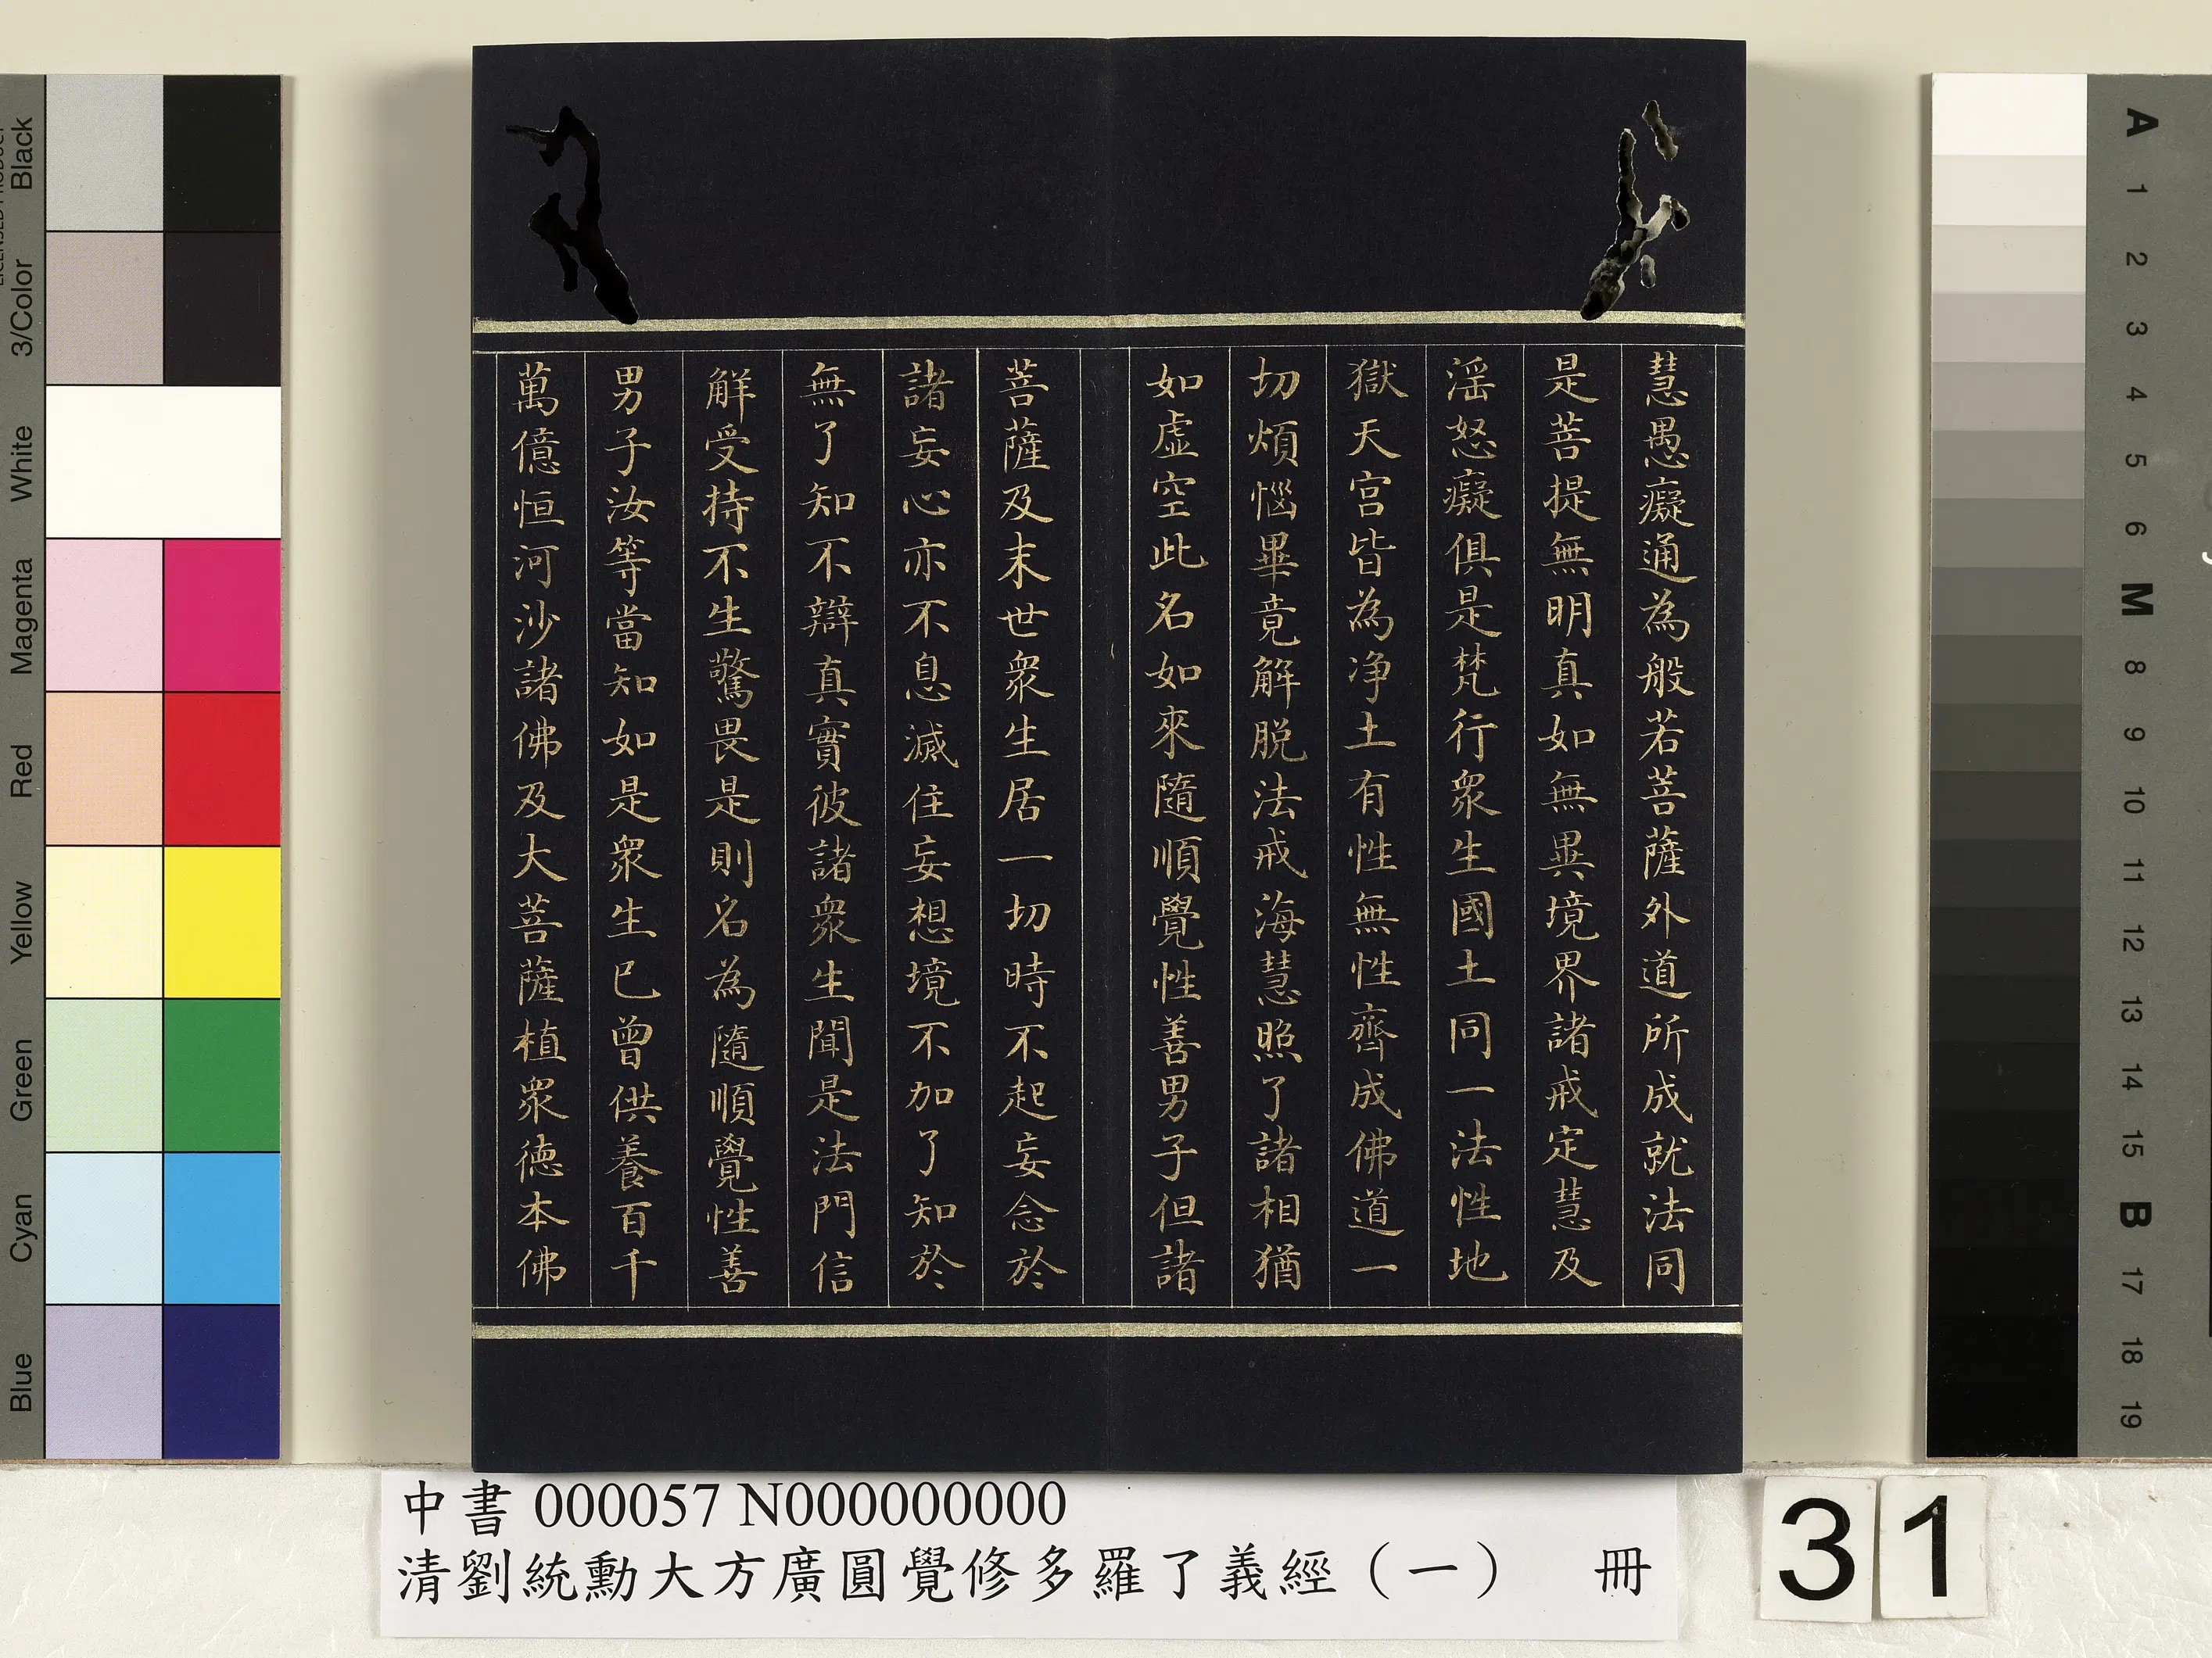 慧愚癡通為般若菩薩外道所成就法同
是菩提無明真如無異境界諸戒定慧及
淫怒癡俱是梵行眾生國土同一法性地
獄天宮皆為淨土有性無性齊成佛道一
切煩惱畢竟解脫法戒海慧照了諸相猶
如虛空此名如來隨順覺性善男子但諸
菩薩及末世眾生居一切時不起妄念於
諸妄心亦不息滅住妄想境不加了知於
無了知不辯真實彼諸眾生聞是法門信
解受持不生驚畏是則名為隨順覺性善
男子汝等當知如是眾生已曾供養百千
萬億恒河沙諸佛及大菩薩植眾德本佛
中書 000057 N000000000
清劉統勳大方廣圓覺修多羅了義經（一） 冊
31
Black
3/Color
White
Magenta
Red
Yellow
Green
Cyan
Blue
A
1
2
3
4
5
6
M
8
9
10
11
12
13
14
15
B
17
18
19